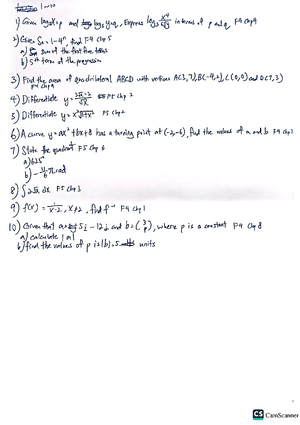 1) Given log₃ p and log₃ y=q, Express log₃ in terms of p and q F4 Chp4
2) Given Sn = 1-4ⁿ, find F4 Chp 5
a) Sum of the first five terms
b) 5th term of the progression
3) Find the area of quadrilateral ABCD with vertices A(3,7), B(-9,2), C(0,0) and D(7,3)
F4 Chp 7
4) Differentiate y= F5 Chp 2
5) Differentiate y= F5 Chp 2
6) A curve y=ax²+bx+8 has a turning point at (-2,-6), find the values of a and b F4 Chp
7) State the quadrant F5 Chp 6
a) 625°
b) π rad
8) ∫2√x dx F5 Chp 3
9) f(x) = 1/(x-2), x≠2, find f⁻¹ F4 Chp 1
10) Given that a= 5i -12j and b= (3 p), where p is a constant F4 Chp 8
a) Calculate |a|
b) find the values of p if |b|=5 units
CS CamScanner